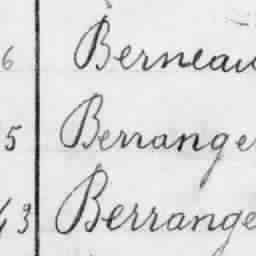 6 Berneau
5 Berrange
43 Berrange